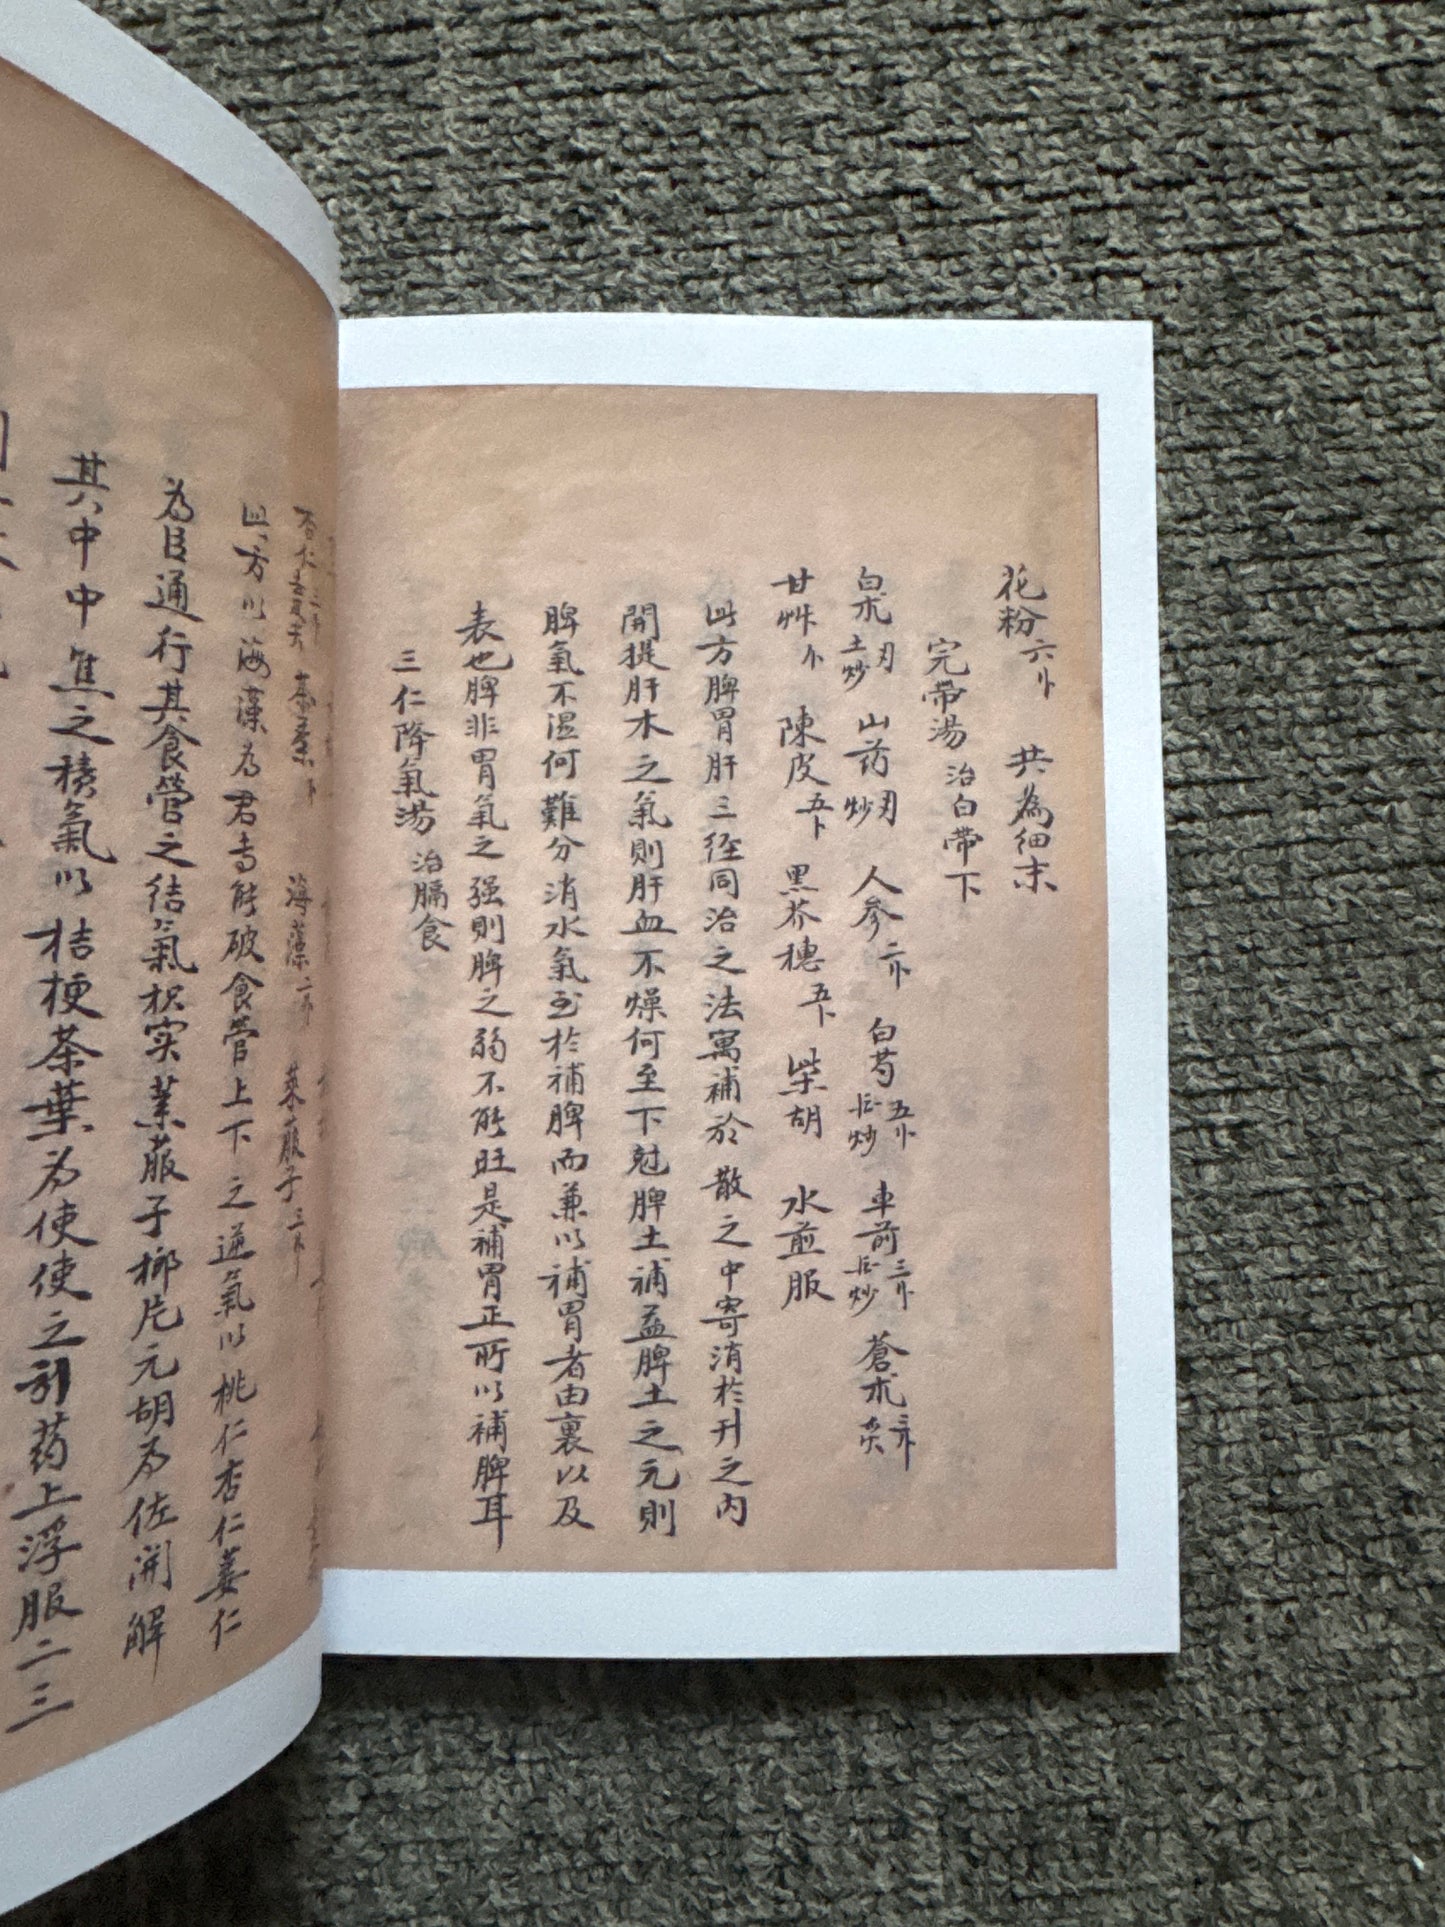 花粉六卜 共為细末
完帶湯 治白帶下
白朮刃土炒 山药刃炒 人參二卜 白芍五卜 炒 車前三卜 炒 蒼朮三卜炙
甘艸卜 陳皮五卜 黑芥穗五卜 柴胡 水煎服
此方脾胃肝三経同治之法寓補於散之中寄消於升之內
開提肝木之氣則肝血不燥何至下尅脾土補益脾土之元則
脾氣不湿何難分消水氣至於補脾而兼以補胃者由裏以及
表也脾非胃氣之强則脾之弱不能旺是補胃正所以補脾耳
三仁降氣湯 治膈食
杏仁 茶葉 海藻二卜 萊菔子三卜
此方以海藻為君专能破食管上下之逆氣以桃仁杏仁蒌仁
为臣通行其食管之结氣枳实莱菔子榔片元胡为佐開解
其中中焦之積氣以桔梗茶葉为使使之引药上浮服二三